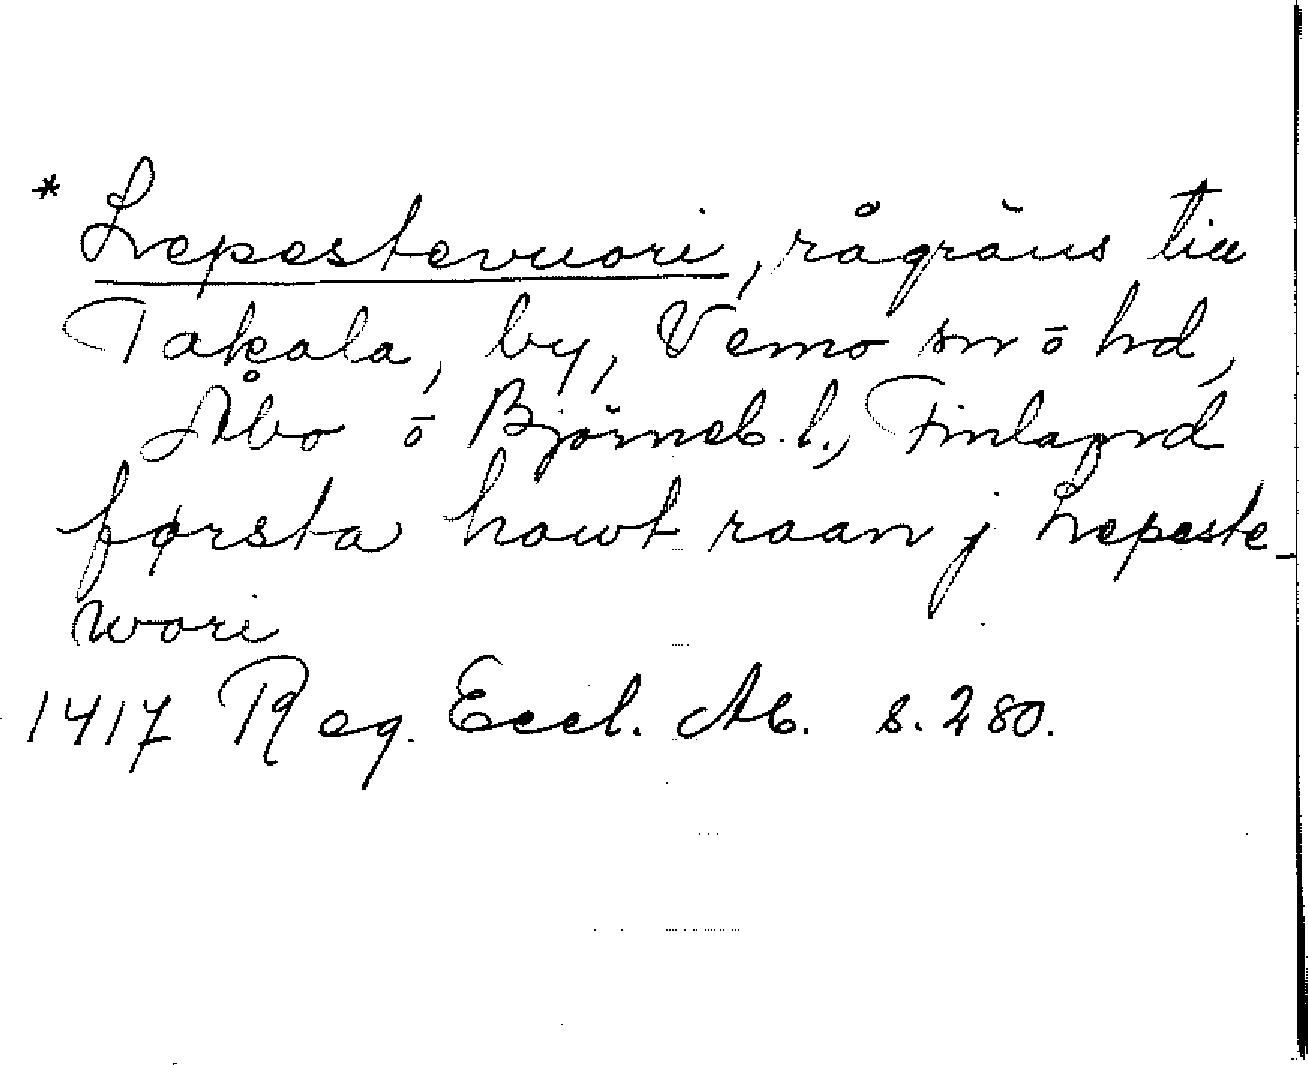 * Lepestevuori, rågräns till
Takala, by, Vemo sn o hd,
Åbo o Björneb. l., Finland
førsta howt raan j Lepeste-
wori
1417 Reg. Eccl. Ab. s. 280.